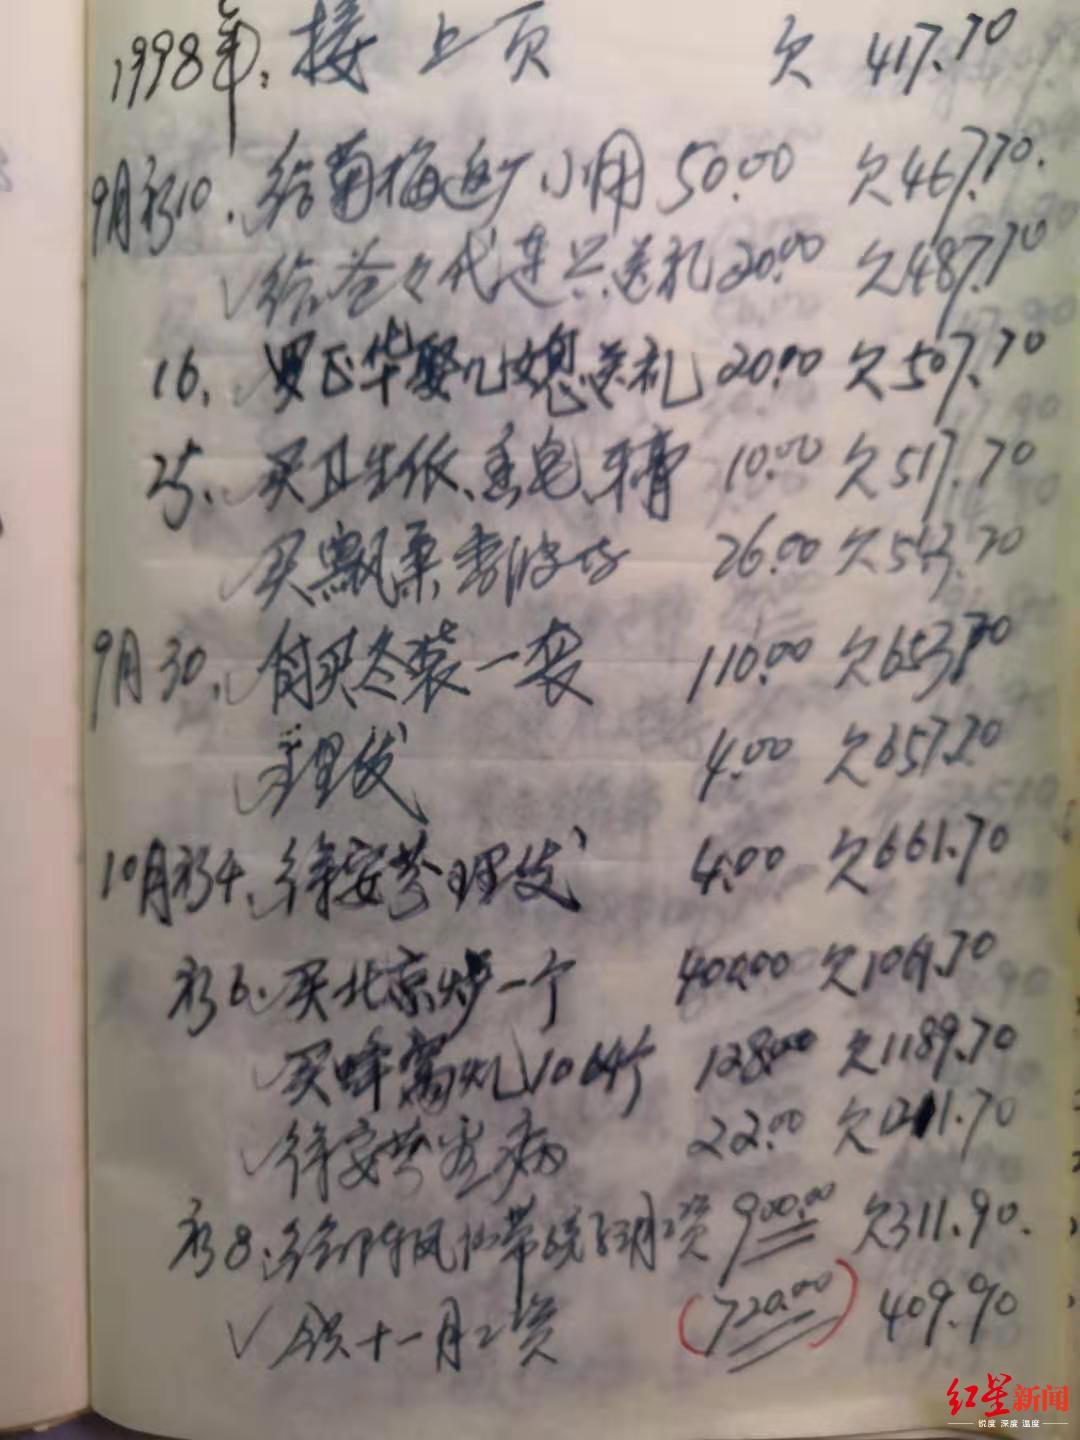 1998年: 接上页 欠 417.70
9月初10. 给菊梅 小用 50.00 欠467.70.
√给爸々代 送礼 20.00 欠487.70
16. 华娶儿媳送礼 20.00 欠507.70
25. √买卫生纸、香皂、牙膏 10.00 欠517.70
√买飘柔 26.00 欠543.70
9月30. √ 买冬装一 110.00 欠653.70
√理发 4.00 欠657.70
10月初4. √徐安芬理发 4.00 欠661.70
初6. 买北京炉一个 400.00 欠1061.70
√买蜂窝 128.00 欠1189.70
√徐安芬 病 22.00 欠1211.70
初8. √给 月工资 900.00 欠311.90.
√ 领十一月工资 (720.00) 409.90
红星新闻
锐度 深度 温度